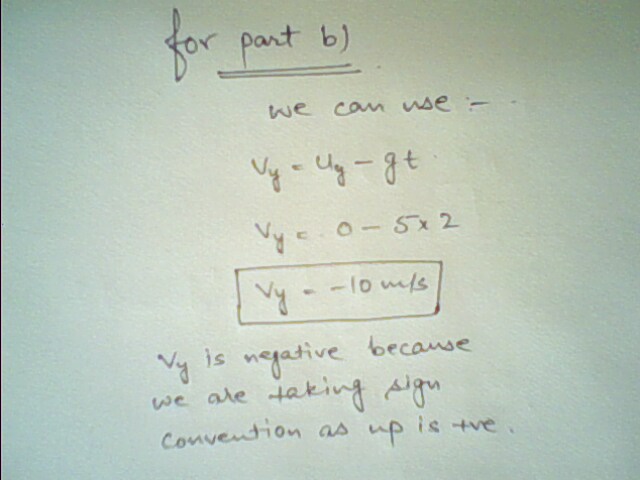 for part b)
we can use :-
Vy = Uy - gt
Vy = 0 - 5x2
Vy = -10 m/s
Vy is negative because
we are taking sign
convention as up is +ve.